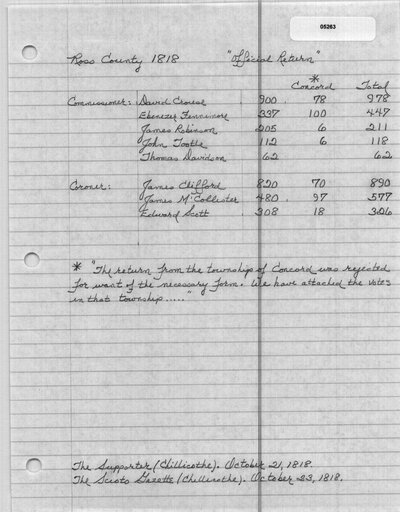 05263
Ross County 1818 "Official Return"
* Concord Total
Commissioner: David Crouse 900 . 78 978
Ebenezer Fennimore 337 100 447
James Robinson 205 6 211
John Tootle 112 6 118
Thomas Davidson 62 62
Coroner: James Clifford 820 70 890
James McCollister 480 . 97 577
Edward Scott 308 18 326
* "The return from the township of Concord was rejected
for want of the necessary form. We have attached the votes
in that township....."
The Supporter (Chillicothe). October 21, 1818.
The Scioto Gazette (Chillicothe). October 23, 1818.